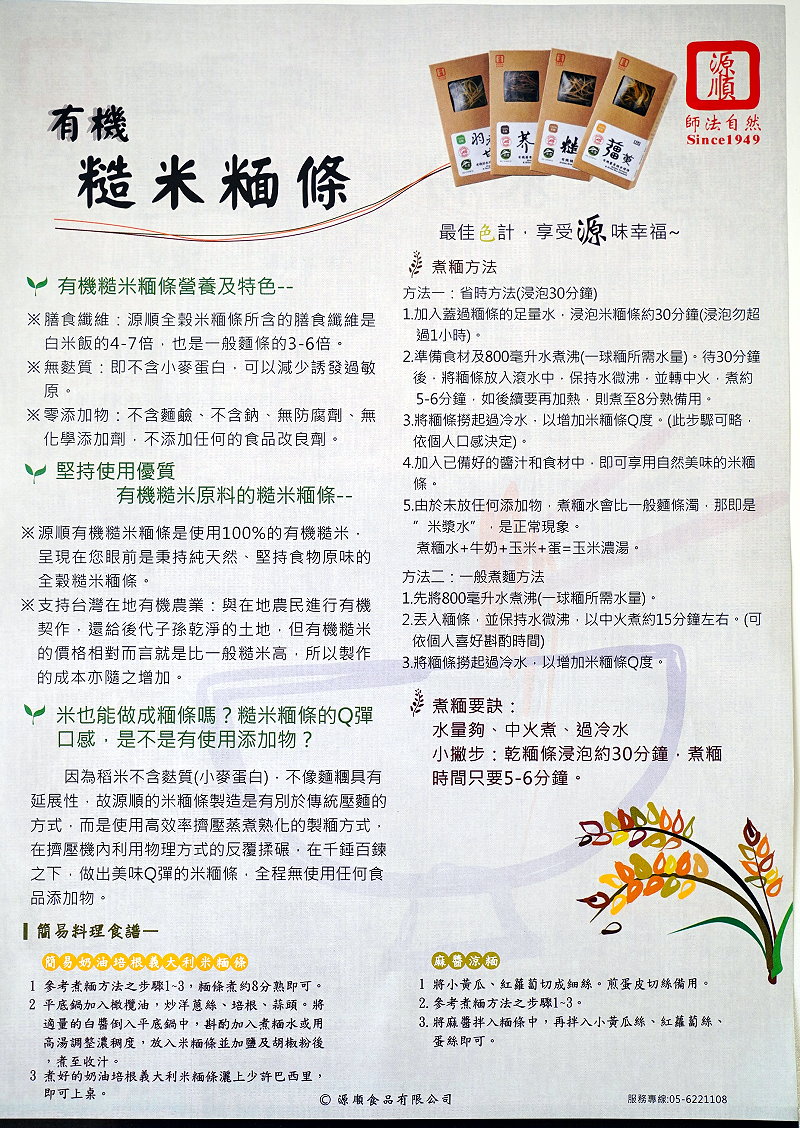 有機
糙米糆條
源順
師法自然
Since1949
最佳色計，享受源味幸福~
有機糙米糆條營養及特色--
※膳食纖維：源順全穀米糆條所含的膳食纖維是
白米飯的4-7倍，也是一般麵條的3-6倍。
※無麩質：即不含小麥蛋白，可以減少誘發過敏
原。
※零添加物：不含麵鹼、不含鈉、無防腐劑、無
化學添加劑，不添加任何的食品改良劑。
堅持使用優質
有機糙米原料的糙米糆條--
※源順有機糙米糆條是使用100%的有機糙米，
呈現在您眼前是秉持純天然、堅持食物原味的
全穀糙米糆條。
※支持台灣在地有機農業：與在地農民進行有機
契作，還給後代子孫乾淨的土地，但有機糙米
的價格相對而言就是比一般糙米高，所以製作
的成本亦隨之增加。
米也能做成糆條嗎？糙米糆條的Q彈
口感，是不是有使用添加物？
因為稻米不含麩質(小麥蛋白)，不像麵糰具有
延展性，故源順的米糆條製造是有別於傳統壓麵的
方式，而是使用高效率擠壓蒸煮熟化的製糆方式，
在擠壓機內利用物理方式的反覆揉碾，在千錘百鍊
之下，做出美味Q彈的米糆條，全程無使用任何食
品添加物。
煮糆方法
方法一：省時方法(浸泡30分鐘)
1.加入蓋過糆條的足量水，浸泡米糆條約30分鐘(浸泡勿超
過1小時)。
2.準備食材及800毫升水煮沸(一球糆所需水量)。待30分鐘
後，將糆條放入滾水中，保持水微沸，並轉中火，煮約
5-6分鐘，如後續要再加熱，則煮至8分熟備用。
3.將糆條撈起過冷水，以增加米糆條Q度。(此步驟可略，
依個人口感決定)。
4.加入已備好的醬汁和食材中，即可享用自然美味的米糆
條。
5.由於未放任何添加物，煮糆水會比一般麵條濁，那即是
”米漿水”，是正常現象。
煮糆水+牛奶+玉米+蛋=玉米濃湯。
方法二：一般煮麵方法
1.先將800毫升水煮沸(一球糆所需水量)。
2.丟入糆條，並保持水微沸，以中火煮約15分鐘左右。(可
依個人喜好斟酌時間)
3.將糆條撈起過冷水，以增加米糆條Q度。
煮糆要訣：
水量夠、中火煮、過冷水
小撇步：乾糆條浸泡約30分鐘，煮糆
時間只要5-6分鐘。
簡易料理食譜—
簡易奶油培根義大利米糆條
1 參考煮糆方法之步驟1~3，糆條煮約8分熟即可。
2 平底鍋加入橄欖油，炒洋蔥絲、培根、蒜頭。將
適量的白醬倒入平底鍋中，斟酌加入煮糆水或用
高湯調整濃稠度，放入米糆條並加鹽及胡椒粉後
，煮至收汁。
3 煮好的奶油培根義大利米糆條灑上少許巴西里，
即可上桌。
麻醬涼糆
1 將小黃瓜、紅蘿蔔切成細絲。煎蛋皮切絲備用。
2. 參考煮糆方法之步驟1~3。
3. 將麻醬拌入糆條中，再拌入小黃瓜絲、紅蘿蔔絲、
蛋絲即可。
© 源順食品有限公司
服務專線:05-6221108